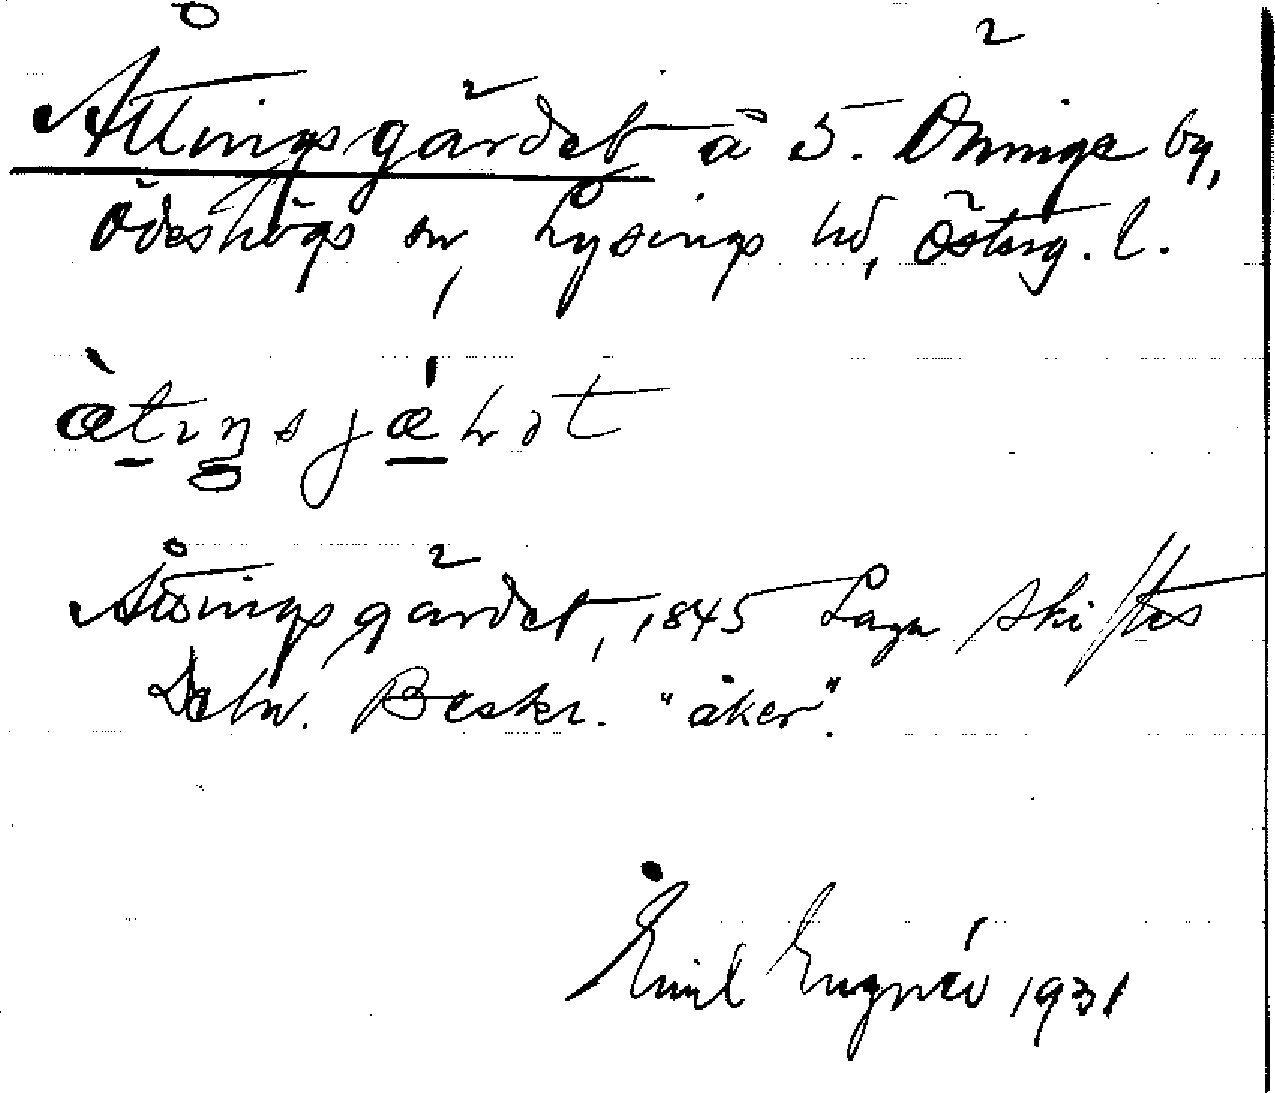 Åttingsgärdet å S. Öninge by,
Ödeshögs sn, Lysings hd, Österg. l.
ὰtıŋsjǽrdt
Åttingsgärdet, 1845 Laga Skiftes
Deln. Beskr. "åker".
Emil Lugnér 1931